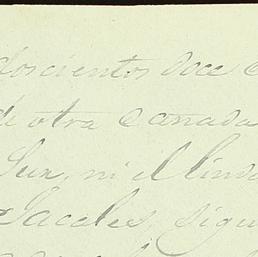 doscientos doce
de otra cañada
Sur, ni el linde
Jacales, sigu